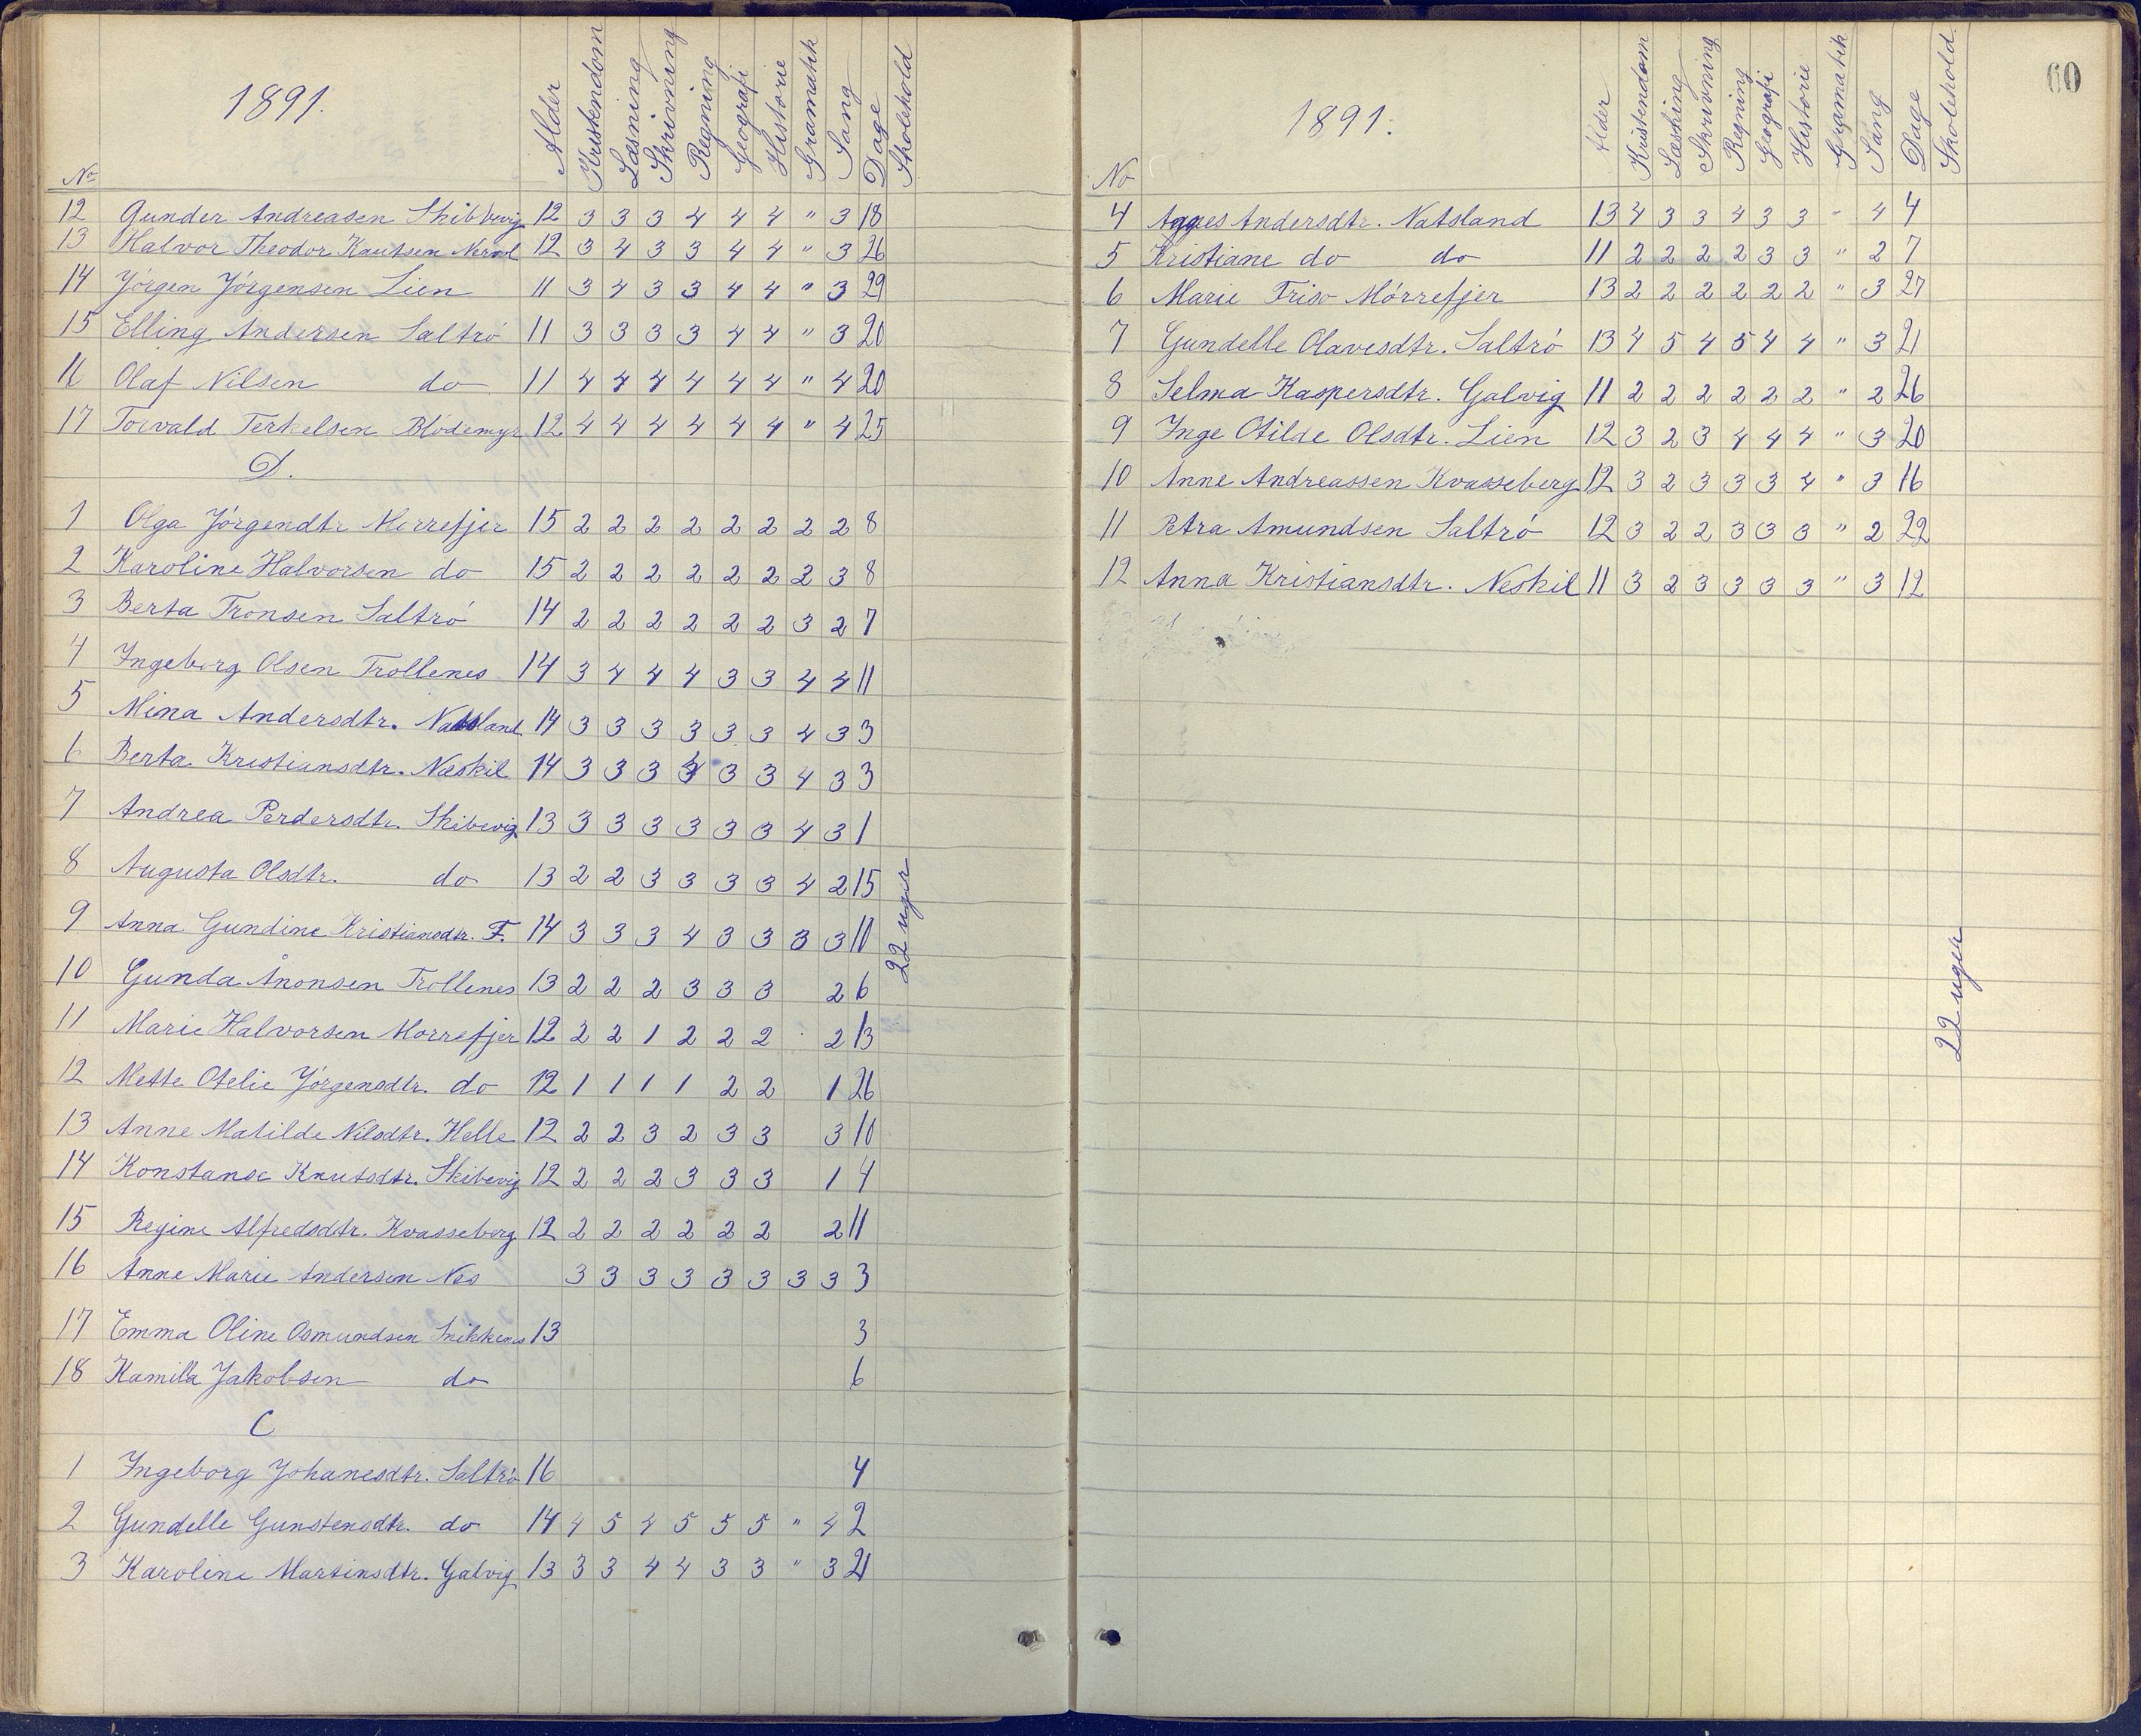 1891.
No Alder Kristendom Læsning Skrivning Regning Geografi Historie Gramatik Sang Dage Skolehold
12 Gunder Andreasen Skibbvig 12 3 3 3 4 4 4 " 3 18
13 Halvor Theodor Knutsen 12 3 4 3 3 4 4 " 3 26
14 Jörgen Jörgensen Lien 11 3 4 3 3 4 4 " 3 29
15 Elling Andersen Saltrö 11 3 3 3 3 4 4 " 3 20
16 Olaf Nilsen do 11 4 4 4 4 4 4 " 4 20
17 Torvald Terkelsen Blödemyr 12 4 4 4 4 4 4 " 4 25
D.
1 Olga Jörgendtr Morrefjer 15 2 2 2 2 2 2 2 2 8
2 Karoline Halvorsen do 15 2 2 2 2 2 2 2 3 8
3 Berta Tronsen Saltrö 14 2 2 2 2 2 2 3 2 7
4 Ingeborg Olsen Trollenes 14 3 4 4 4 3 3 4 4 11
5 Mina Andersdtr. Natsland 14 3 3 3 3 3 3 4 3 3
6 Berta Kristiansdtr. Næskil 14 3 3 3 4 3 3 4 3 3
7 Andrea Perdersdtr. Skibevig 13 3 3 3 3 3 3 4 3 1
8 Augusta Olsdtr. do 13 2 2 3 3 3 3 4 2 15
9 Anna Gundine Kristiansdtr. F. 14 3 3 3 4 3 3 3 3 10
10 Gunda Ånonsen Trollenes 13 2 2 2 3 3 3 2 6
11 Marie Halvorsen Morrefjer 12 2 2 1 2 2 2 2 13
12 Mette Otelie Jörgensdtr. do 12 1 1 1 1 2 2 1 26
13 Anne Matilde Nilsdtr. Helle 12 2 2 3 2 3 3 3 10
14 Konstanse Knutsdtr. Skibevig 12 2 2 2 3 3 3 1 4
15 Regine Alfredsdtr. Kvasseberg 12 2 2 2 2 2 2 2 11
16 Anne Marie Andersen Nes 3 3 3 3 3 3 3 3 3
17 Emma Oline Osmundsen Snikkenes 13 3
18 Kamilla Jakobsen do 6
22 uger
C
1 Ingeborg Johanesdtr. Saltrö 16 4
2 Gundelle Gunstensdtr. do 14 4 5 4 5 5 5 " 4 2
3 Karoline Martinsdtr. Galvig 13 3 3 4 4 3 3 " 3 21
60
1891.
No Alder Kristendom Læsning Skrivning Regning Geografi Historie Gramatik Sang Dage Skolehold.
4 Agnes Andersdtr. Natsland 13 4 3 3 4 3 3 " 4 4
5 Kristiane do do 11 2 2 2 2 3 3 " 2 7
6 Marie Friso Mörrefjer 13 2 2 2 2 2 2 " 3 27
7 Gundelle Olavesdtr. Saltrö 13 4 5 4 5 4 4 " 3 21
8 Selma Kaspersdtr. Galvig 11 2 2 2 2 2 2 " 2 26
9 Inge Otilde Olsdtr. Lien 12 3 2 3 4 4 4 " 3 20
10 Anne Andreassen Kvasseberg 12 3 2 3 3 3 4 " 3 16
11 Petra Amundsen Saltrö 12 3 2 2 3 3 3 " 2 22
12 Anna Kristiansdtr. Neskil 11 3 2 3 3 3 3 " 3 12
22 uger